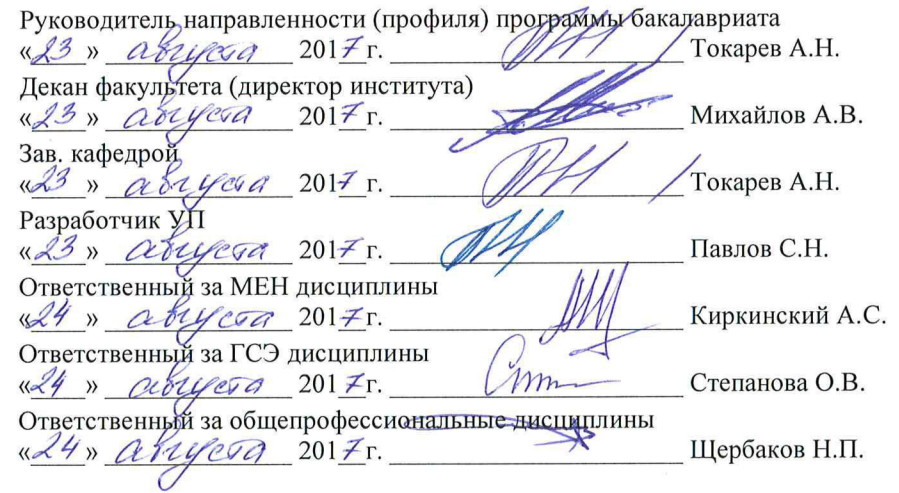 Руководитель направленности (профиля) программы бакалавриата
«23» августа 2017 г. Токарев А.Н.
Декан факультета (директор института)
«23» августа 2017 г. Михайлов А.В.
Зав. кафедрой
«23» августа 2017 г. Токарев А.Н.
Разработчик УП
«23» августа 2017 г. Павлов С.Н.
Ответственный за МЕН дисциплины
«24» августа 2017 г. Киркинский А.С.
Ответственный за ГСЭ дисциплины
«24» августа 2017 г. Степанова О.В.
Ответственный за общепрофессиональные дисциплины
«24» августа 2017 г. Щербаков Н.П.